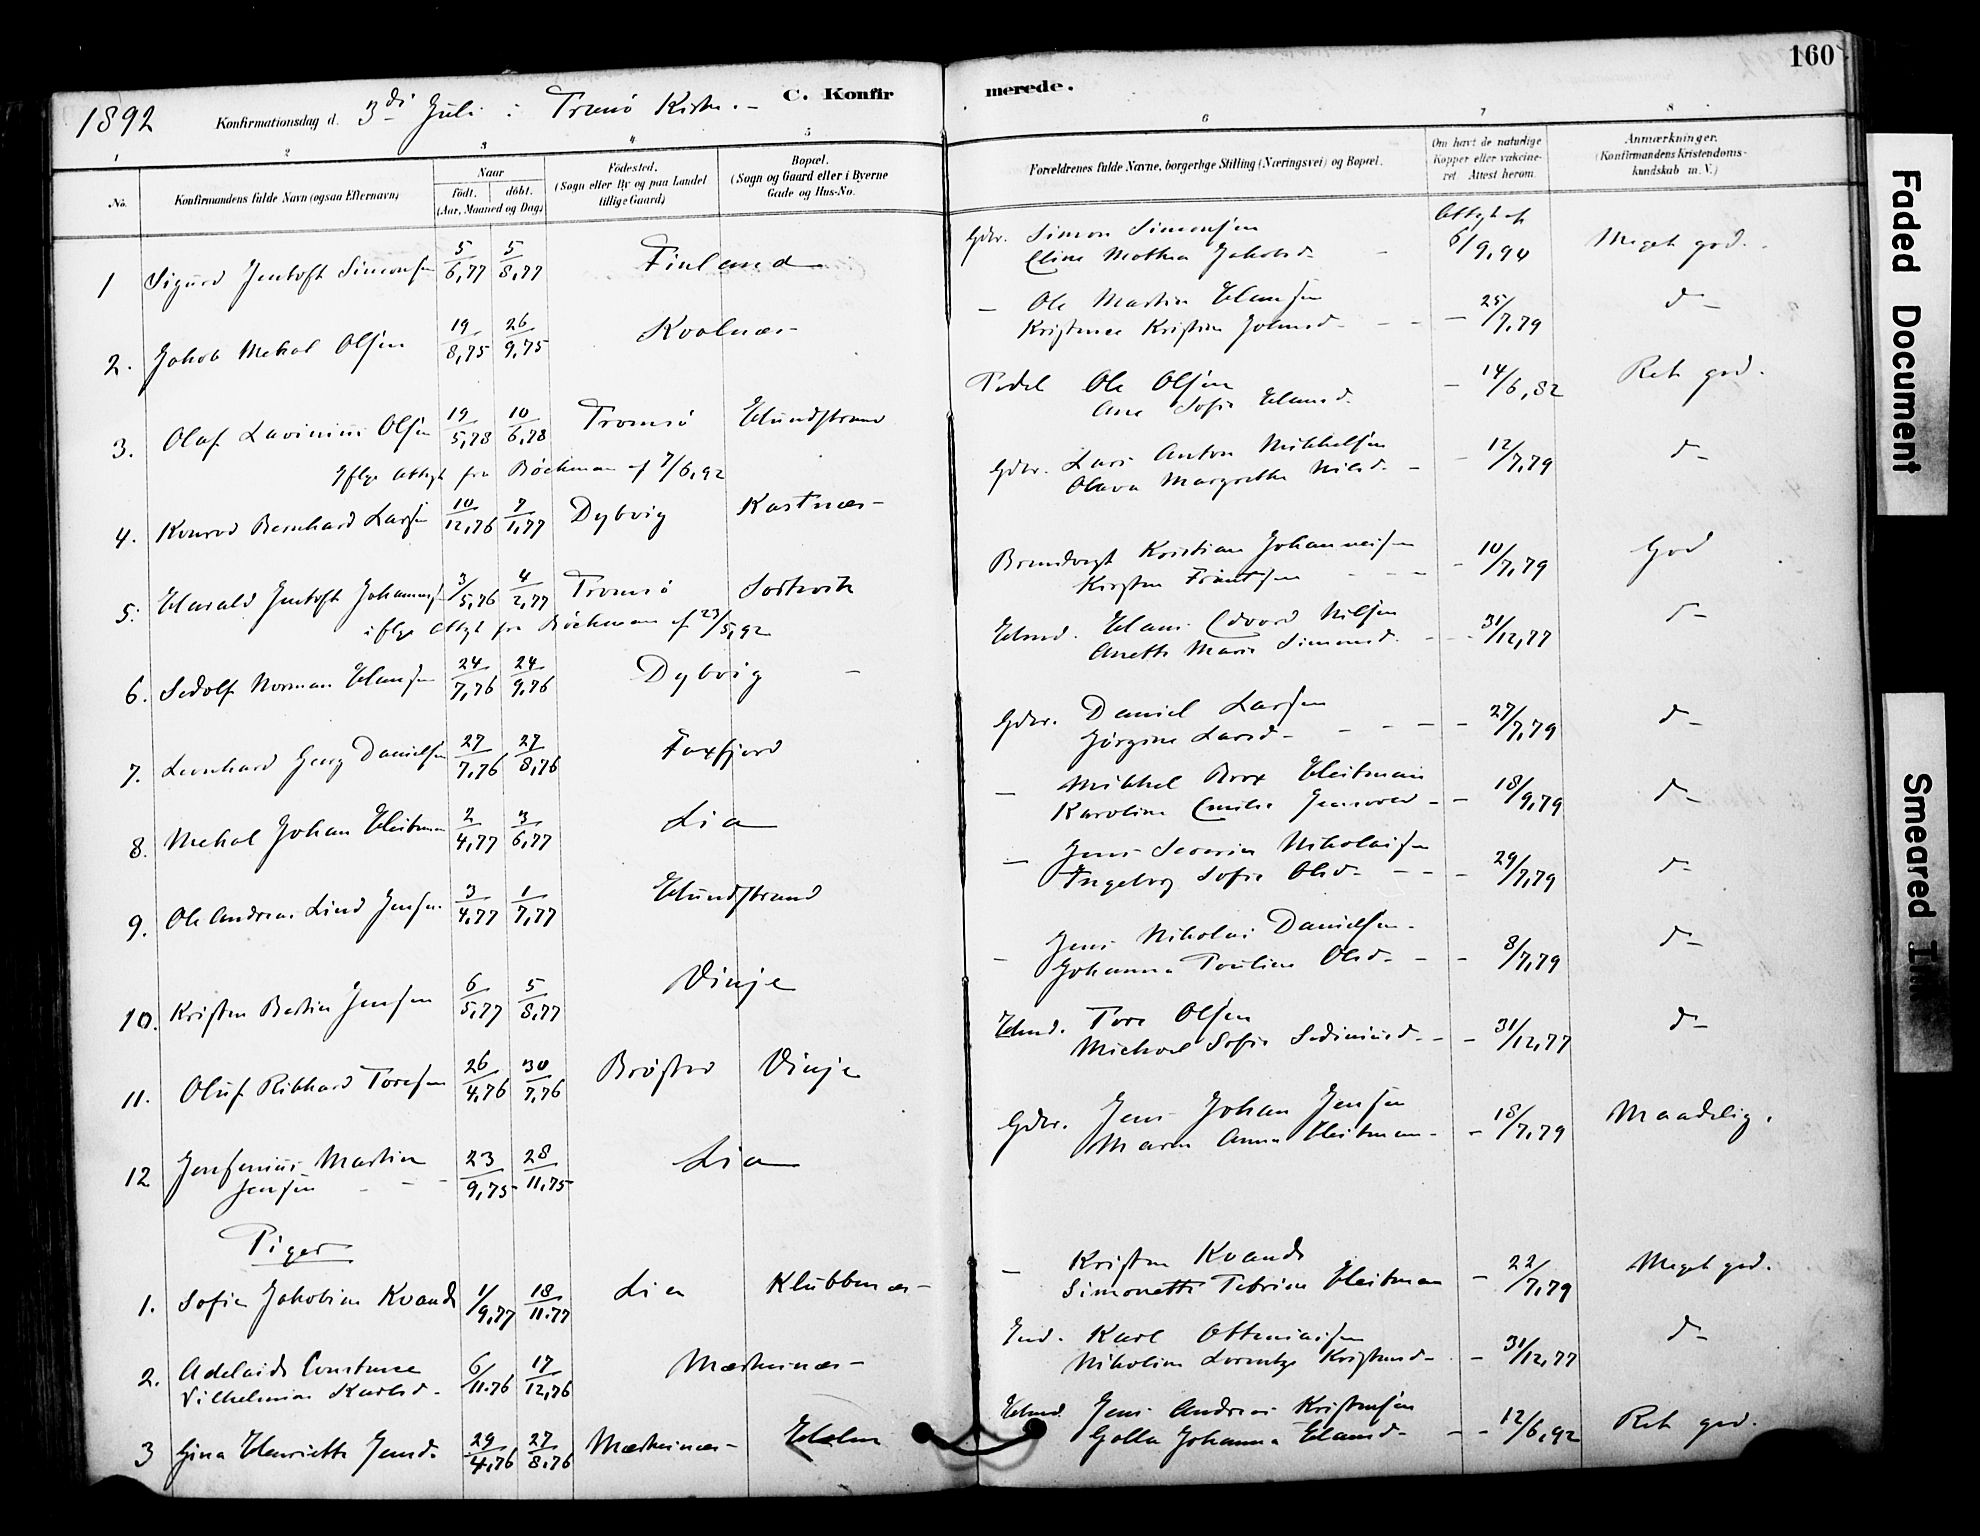 160
1892 Konfirmationsdag d. 3di Juli i Tromsö Kirke. C. Konfirmerede.
1 2 3 4 5 6 7 8
No. Konfirmandens fulde Navn (ogsaa Efternavn) Naar födt. döbt. (Aar, Maaned og Dag) Födested. (Sogn eller By og paa Landet tillige Gaard) Bopæl. (Sogn og Gaard eller i Byerne Gade og Hus-No.
Forældrenes fulde Navne, borgerlige Stilling (Næringsvei) og Bopæl. Om havt de naturlige Kopper eller vakcineret Attest herom. Anmærkninger. (Konfirmandens Kristendomskundskab m. V.)
1 Sigurd Jentoft Simonsen 5/6,77 5/8,77 Finland Gdbr. Simon Simonsen Attest af 6/9,90 Meget god.
Eline Mathea Jakobsd.
2. Jakob Mekal Olsen 19/8,75 26/9,75 Kvalnæs – Ole Martin Hansen – 25/7,79 d–
Kristense Kristine Johnsd.
3. Olaf Lavinius Olsen 19/5,78 10/6,78 Tromsö Hundstrand Pedel Ole Olsen – 14/6,82 Ret god.
Ane Sofie Hansd.
Iflge Attest fra Böckman af 7/6,92
4. Konrad Bernhard Larsen 10/12,76 7/1,77 Dybvig Kastnæs Gdbr. Lars Anton Mikkelsen – 12/7,79 d–
Olava Margrethe Nilsd.
5. Harald Jentoft Johannesen 3/5,76 4/2,77 Tromsö Kristian Johannesen – 10/7,79 God
Kirsten
iflge Attest fra Böckman af 23/5,92
6. Sedolf Norman Hansen 24/7,76 24/9,76 Dybvig – Hmd. Hans Edvard Nilsen – 31/12,77 d–
Anette Marie Simonsd.
7. Leonhard Georg Danielsen 27/7,76 27/8,76 Faxfjord Gdbr. Daniel Larsen – 27/7,79 d–
Jörgine Larsd.
8. Mekal Johan Heitman 2/4,77 3/6,77 Lia – Mikkel Brox Heitman – 18/9,79 d–
Karoline Emilie
9. Ole Andreas Lind Jensen 3/4,77 1/7,77 Hundstrand – Jens Severin Nikolaisen – 29/7,79 d–
Ingeborg Sofie Olsd.
10. Kristen Bertin Jensen 6/5,77 5/8,77 Vinje – Jens Nikolai Danielsen – 8/7,79 d–
Johanna Pauline Olsd.
11. Oluf Rikhard Toresen 26/4,76 30/7,76 Bröstad Vinje Hmd. Tore Olsen – 31/12,77 d–
Michael Sofie
12 Jensenius Martin Jensen 23/9,75 28/11,75 Lia Gdbr. Jens Johan Jensen – 18/7,79 Maadelig.
Maren Anna Heitman
Piger
1. Sofie Jakobine Kvande 1/9,77 18/11.77 Lia Klubbnæs – Kristen Kvande – 22/7,79 Meget god.
Simonette Petrine Heitman
2. Adelaide Constanse Vilhelmine Karlsd. 6/11.76 17/12,76 Mækinæs Ind. Karl Otteniusen – 31/12,77 d–
Nikoline Lorentze Kristensd.
3 Gina Henriette Jensd. 29/4,76 27/8,76 Mækinæs Holm Hmd. Jens Andreas Kristensen – 12/6,92 Ret god.
Golla Johanna Hansd.
Faded Document
Smeared Ink